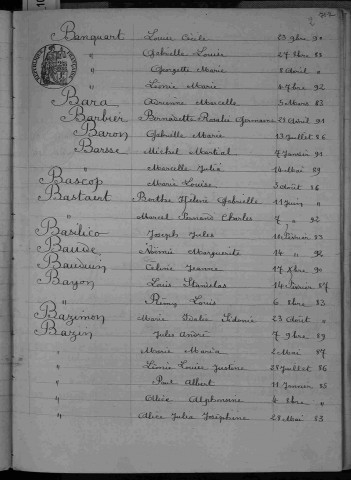 Banquart Louise Cécile 23 9bre 90
" Gabrielle Louise 27 8bre 89
" Georgette Marie 8 Avril "
" Léonie Marie 4 7bre 92
Bara Adrienne Marcelle 5 Mars 83
Barbier Bernadette Rosalie Germaine 23 Avril 91
Baron Gabrielle Marie 13 Juillet 86
Barsse Michel Martial 7 Janvier 91
" Marcelle Julia 14 Mai 89
Bascop Marie Louise 3 Août 86
Bastaert Berthe Hélène Gabrielle 11 Juin "
" Marcel Fernand Charles 7 " 92
Basilico Joseph Jules 10 Février 83
Baude Noëmie Marguerite 14 " 92
Bauduin Célinie Jeanne 17 Xbre 90
Bayon Louis Stanislas 14 Février 87
" Rémy Louis 6 8bre 83
Bazimon Marie Idalie Sidonie 23 Août "
Bazin Jules André 7 9bre 89
" Marie Maria 2 Mai 87
" Léonie Louise Justine 28 Juillet 86
" Paul Albert 11 Janvier 85
" Alice Alphonsine 4 8bre "
" Alice Julia Joséphine 28 Mai 83